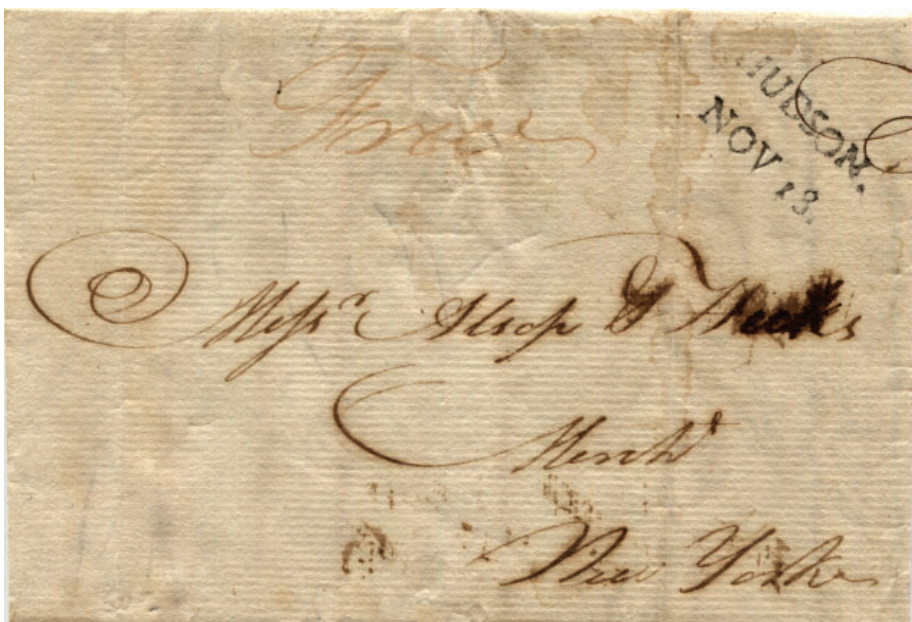 Free
HUDSON.
NOV 13.
Messrs Alsop & Weeks
Merchts
New York